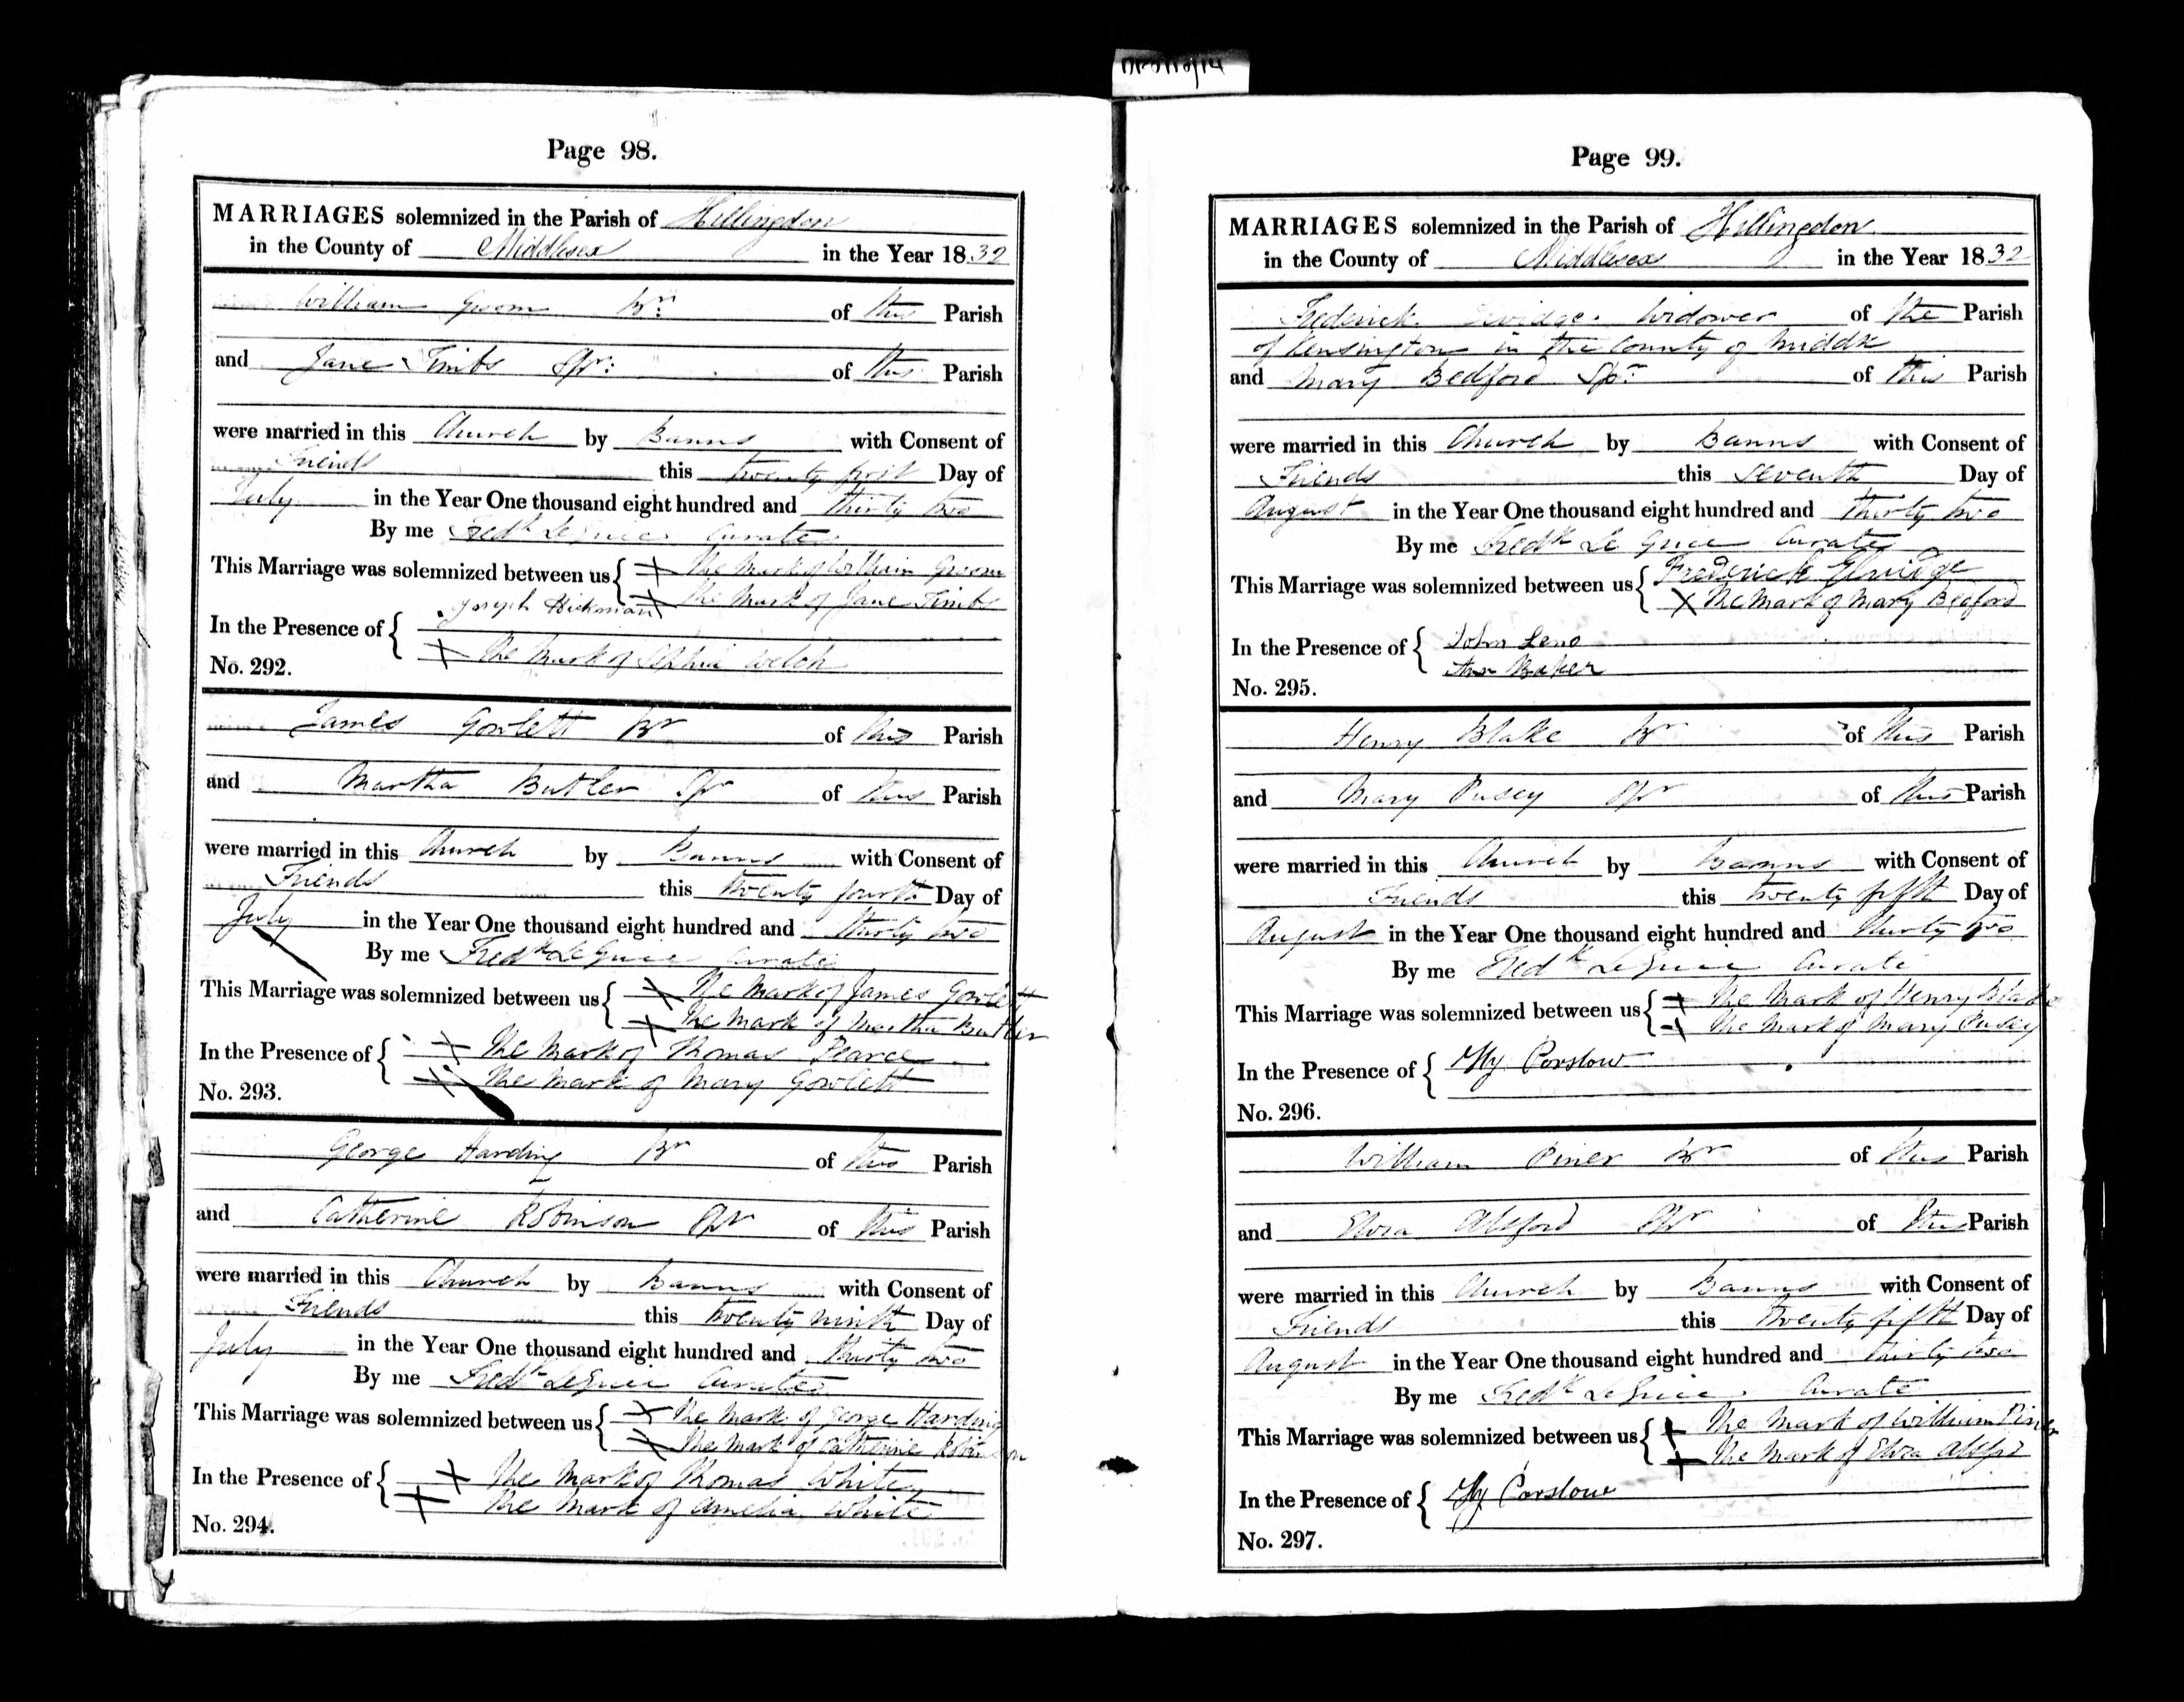 Page 98.
MARRIAGES solemnized in the Parish of Hillingdon
in the County of Middlesex in the Year 1832
William Groom Br. of this Parish
and Jane Timbs Spr: of this Parish
were married in this Church by Banns with Consent of
Friends this twenty first Day of
July in the Year One thousand eight hundred and thirty two
By me Fredk Le Grice Curate
This Marriage was solemnized between us { X The Mark of William Groom
X The Mark of Jane Timbs
In the Presence of { Joseph Hickman
X The Mark of Sophia Welch
No. 292.
James Gowlett Br of this Parish
and Martha Butler Spr of this Parish
were married in this Church by Banns with Consent of
Friends this twenty fourth Day of
July in the Year One thousand eight hundred and thirty two
By me Fredk Le Grice Curate
This Marriage was solemnized between us { X The Mark of James Gowlett
X The Mark of Martha Butler
In the Presence of { X The Mark of Thomas Pearce
X The Mark of Mary Gowlett
No. 293.
George Harding Br of this Parish
and Catherine Robinson Spr of this Parish
were married in this Church by Banns with Consent of
Friends this twenty ninth Day of
July in the Year One thousand eight hundred and thirty two
By me Fredk Le Grice Curate
This Marriage was solemnized between us { X The Mark of George Harding
X The Mark of Catherine Robinson
In the Presence of { X The Mark of Thomas White
X The Mark of Amelia White
No. 294.
Page 99.
MARRIAGES solemnized in the Parish of Hillingdon
in the County of Middlesex in the Year 1832
Frederick Widower of the Parish
of Kensington in the County of Middx
and Mary Bedford Spr of this Parish
were married in this Church by Banns with Consent of
Friends this Seventh Day of
August in the Year One thousand eight hundred and thirty two
By me Fredk Le Grice Curate
This Marriage was solemnized between us { Frederick Elvidge
X The Mark of Mary Bedford
In the Presence of { John Leno
Ann Baker
No. 295.
Henry Blake Br of this Parish
and Mary Pusey Spr of this Parish
were married in this Church by Banns with Consent of
Friends this twenty fifth Day of
August in the Year One thousand eight hundred and thirty two
By me Fredk Le Grice Curate
This Marriage was solemnized between us { X The Mark of Henry Blake
X The Mark of Mary Pusey
In the Presence of { Hy Corslow
No. 296.
William Piner Br of this Parish
and Eliza Alsford Spr of this Parish
were married in this Church by Banns with Consent of
Friends this twenty fifth Day of
August in the Year One thousand eight hundred and thirty two
By me Fredk Le Grice Curate
This Marriage was solemnized between us { X The Mark of William Piner
X The Mark of Eliza
In the Presence of { Hy Corslow
No. 297.